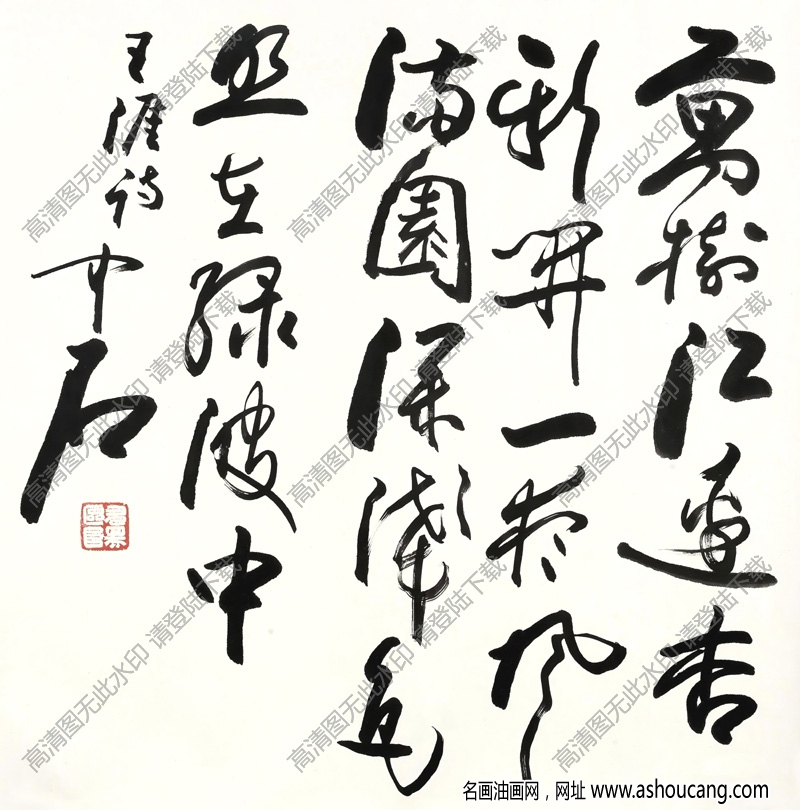 萬樹江邊杏
新開一夜風
滿園深淺色
照在綠波中
王涯詩 中石
高清图无此水印 请登陆下载
高清图无此水印 请登陆下载
高清图无此水印 请登陆下载
高清图无此水印 请登陆下载
高清图无此水印 请登陆下载
高清图无此水印 请登陆下载
高清图无此水印 请登陆下载
高清图无此水印 请登陆下载
高清图无此水印 请登陆下载
名画油画网，网址 www.ashoucang.com